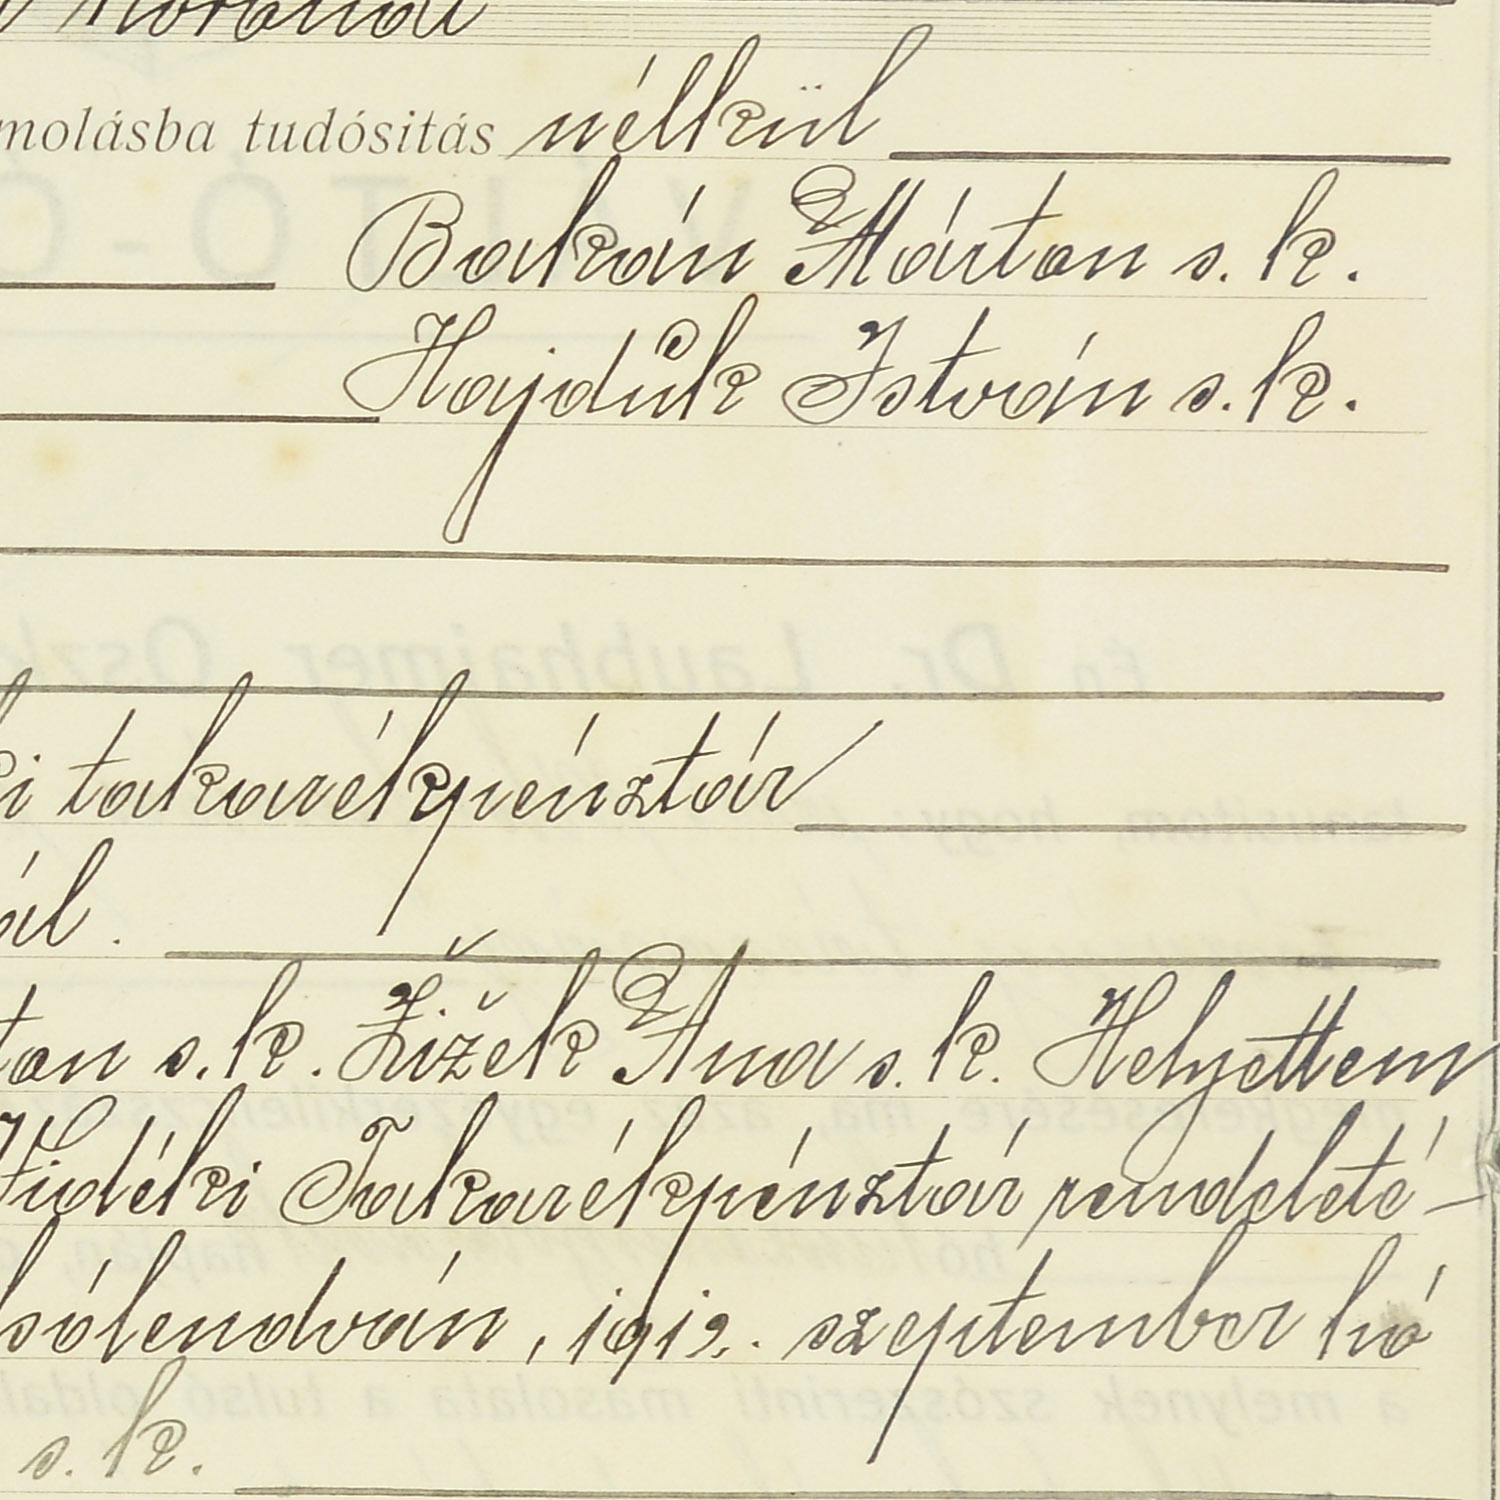 molásba tudósitás nélkül
Bakán Márton s. k.
Hajdúk István s. k.
ki takarékpénztár
ál.
ton s. k. Žižek Ana s. k. Helyettem
Vidéki Takarékpénztár rendeleté-
sólendván, 1912. szeptember hó
s. k.